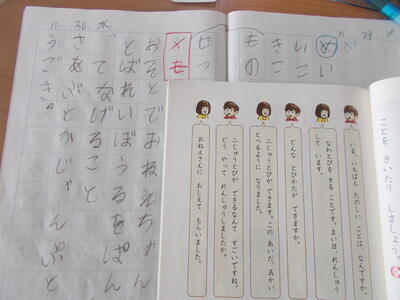 11 29
めい
いこ
きこ
もの
せつ
11 30 水
メも
おそとでおねえちゃん
とばれいぼうるをぱん
てなげること
さあぶとかじゃんぷと
うごき
ことを きいたり しましょう。
いま、いちばん たのしい ことは、なんですか。
なわとびを する ことです。まい日、れんしゅう
して います。
どんな とびかたが できますか。
二じゅうとびが できます。この あいだ、五かい
とべるように なりました。
二じゅうとびが できるなんて すごいですね。
どう やって れんしゅうしましたか。
おねえさんに おしえて もらいました。